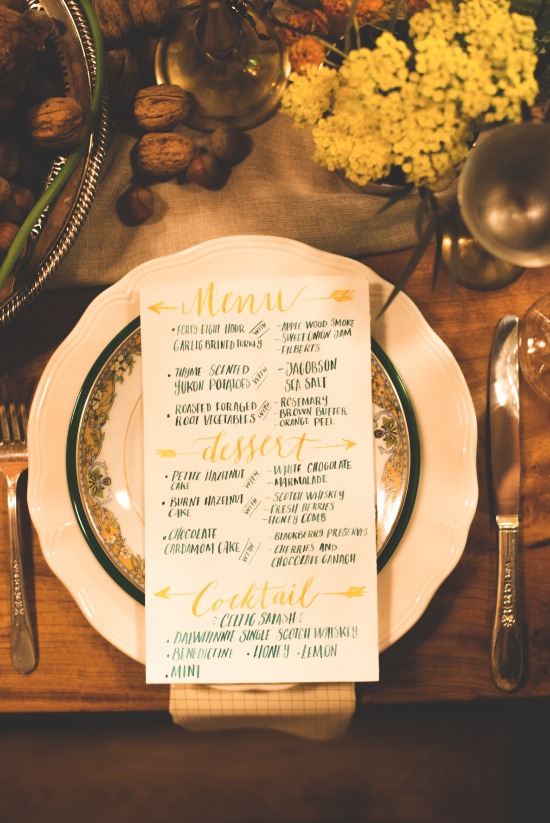 Menu
• FORTY-EIGHT HOUR WITH - APPLE-WOOD SMOKE
GARLIC BRINED TURKEY - SWEET ONION JAM
- FILBERTS
• THYME-SCENTED WITH - JACOBSON
YUKON POTATOES SEA SALT
• ROASTED FORAGED WITH - ROSEMARY
ROOT VEGETABLES - BROWN BUTTER
- ORANGE PEEL
dessert
• PETITE HAZELNUT WITH - WHITE CHOCOLATE
CAKE - MARMALADE
• BURNT HAZELNUT WITH - SCOTCH WHISKEY
CAKE - FRESH BERRIES
- HONEY COMB
• CHOCOLATE WITH - BLACKBERRY PRESERVES
CARDAMOM CAKE - CHERRIES AND
CHOCOLATE GANAGH
Cocktail
CELTIC SMASH
• DALWHINNIE SINGLE SCOTCH WHISKEY
• BENEDICTINE • HONEY • LEMON
• MINT